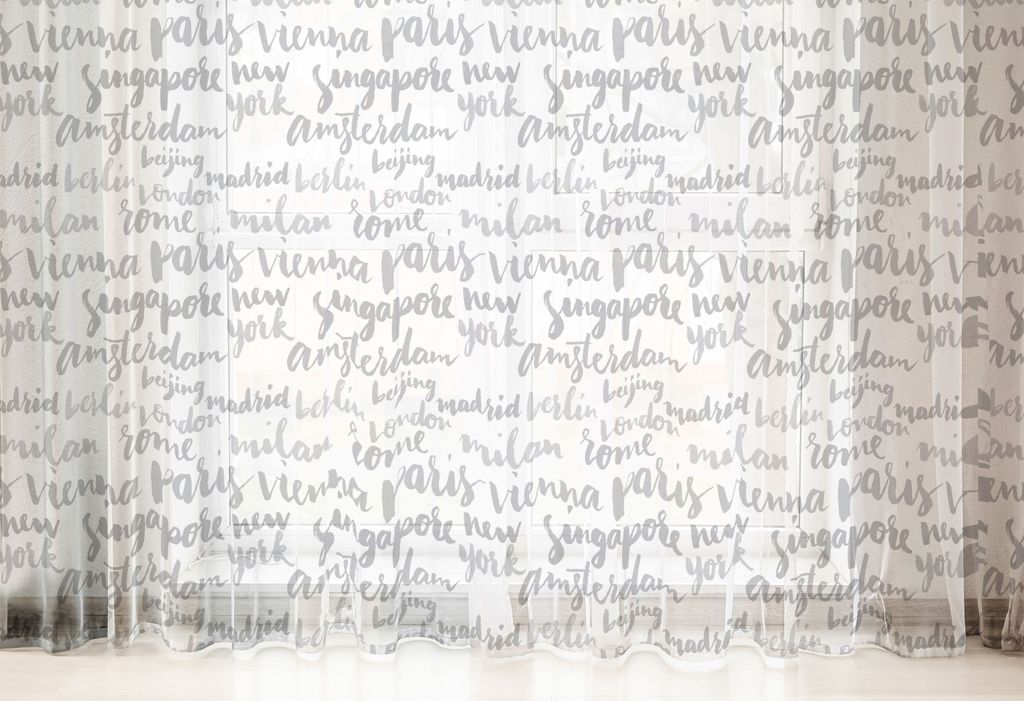 vienna paris vienna paris vienna paris vienna paris vienna
new singapore new singapore new singapore new singapore new
york york york york york
amsterdam amsterdam amsterdam amsterdam
beijing beijing beijing beijing
madrid berlin madrid berlin madrid berlin madrid berlin madrid
london london london london
milan rome milan rome milan rome milan rome
vienna paris vienna paris vienna paris vienna paris
new singapore new singapore new singapore new singapore new
york york york york york
amsterdam amsterdam amsterdam amsterdam
beijing beijing beijing beijing
madrid berlin madrid berlin madrid berlin madrid berlin madrid
london london london london
milan rome milan rome milan rome milan rome
vienna paris vienna paris vienna paris vienna paris
new singapore new singapore new singapore new singapore new
york york york york york
amsterdam amsterdam amsterdam amsterdam
beijing beijing beijing beijing
madrid berlin madrid berlin madrid berlin madrid berlin madrid